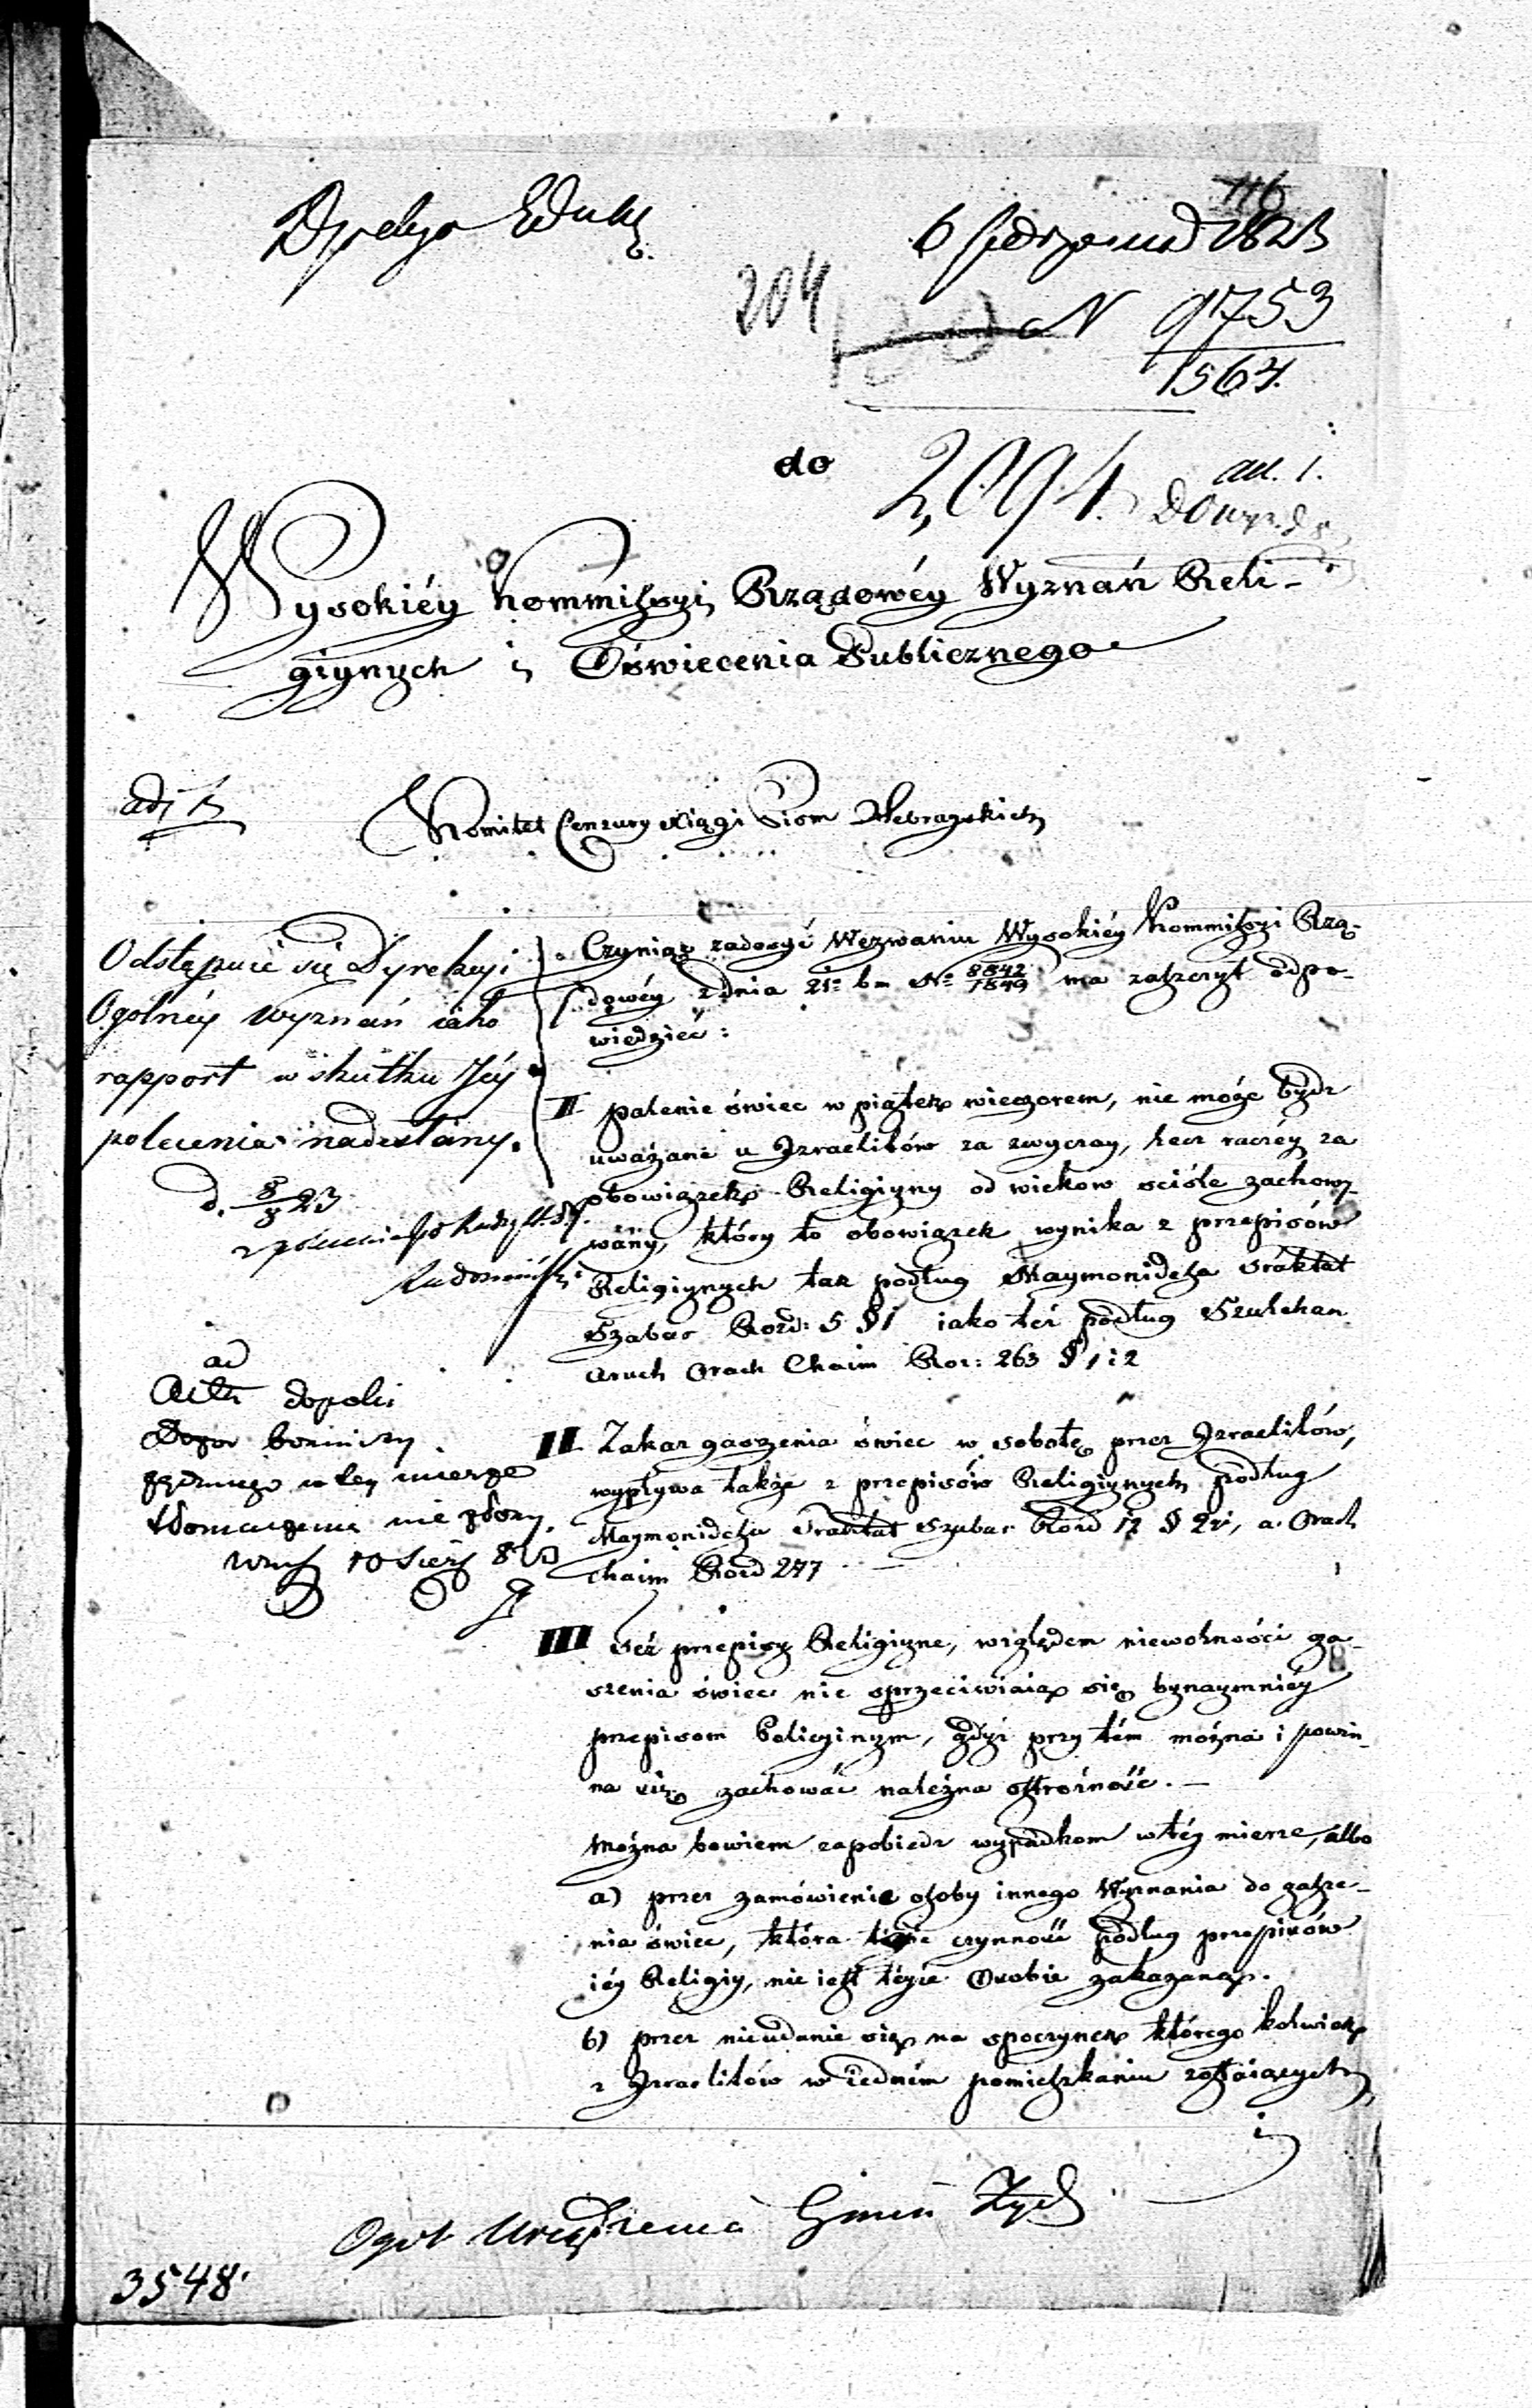 116
6 Sierpnia 1823
204
N 9753
1564.
do
2,094.
ad. 1.
Wysokiéy Kommissyi Rządowéy Wyznań Reli-
giynych i Oświecenia Publicznego
Komitet Cenzury Xiąg i Pism Hebrayskich
Odstępuie się Dyrekcyi
Ogólnéy Wyznań iako
rapport w skutku Jéy
polecenia nadesłany.
d. 8/8 23
Czyniąc zadosyć Wezwaniu Wysokiéy Kommissyi Rzą-
dowéy z dnia 21º b m Nº 8842/1849 ma zaszczyt odpo-
wiedzieć:
I palenie świec w piątek wieczorem, nie może bydz
uważane u Izraelitów za zwyczay, lecz raczéy za
obowiązek Religiyny od wieków ściśle zachowy-
wany, który to obowiązek wynika z przepisów
Religiynych tak podług Maymonidesa Traktat
Szabas Rozd: 5 § 1 iako też podług Szulchan
Aruch Orach Chaim Roz: 263 § 1 i 2
ad
Acta
II Zakaz gaszenia świec w sobotę przez Izraelitów,
wypływa także z przepisów Religiynych podług
Maymonidesa Traktat Szabas Rozd 12 § 2, a Orach
Chaim Rozd 277
w tey mierze
nie złoży.
III Też przepisy Religiyne, względem niewolności ga-
szenia świec nie sprzeciwiaią się bynaymniéy
przepisom Policyinym, gdyż przy tém można i powin-
na się zachować należna ostrożność. —
Można bowiem zapobiedz wypadkom w téy mierze, albo
a) przez zamówienie osoby innego Wyznania do gasze-
nia świec, która czynność podług przepisów
iéy Religiy, nie iest téyże Osobie zakazaną.
b) przez nieudanie się na spoczynek którego kolwiek
z Izraelitów w iedném pomieszkaniu zostaiących
i
Ogól Urządzenia Gmin Żyd
3548.